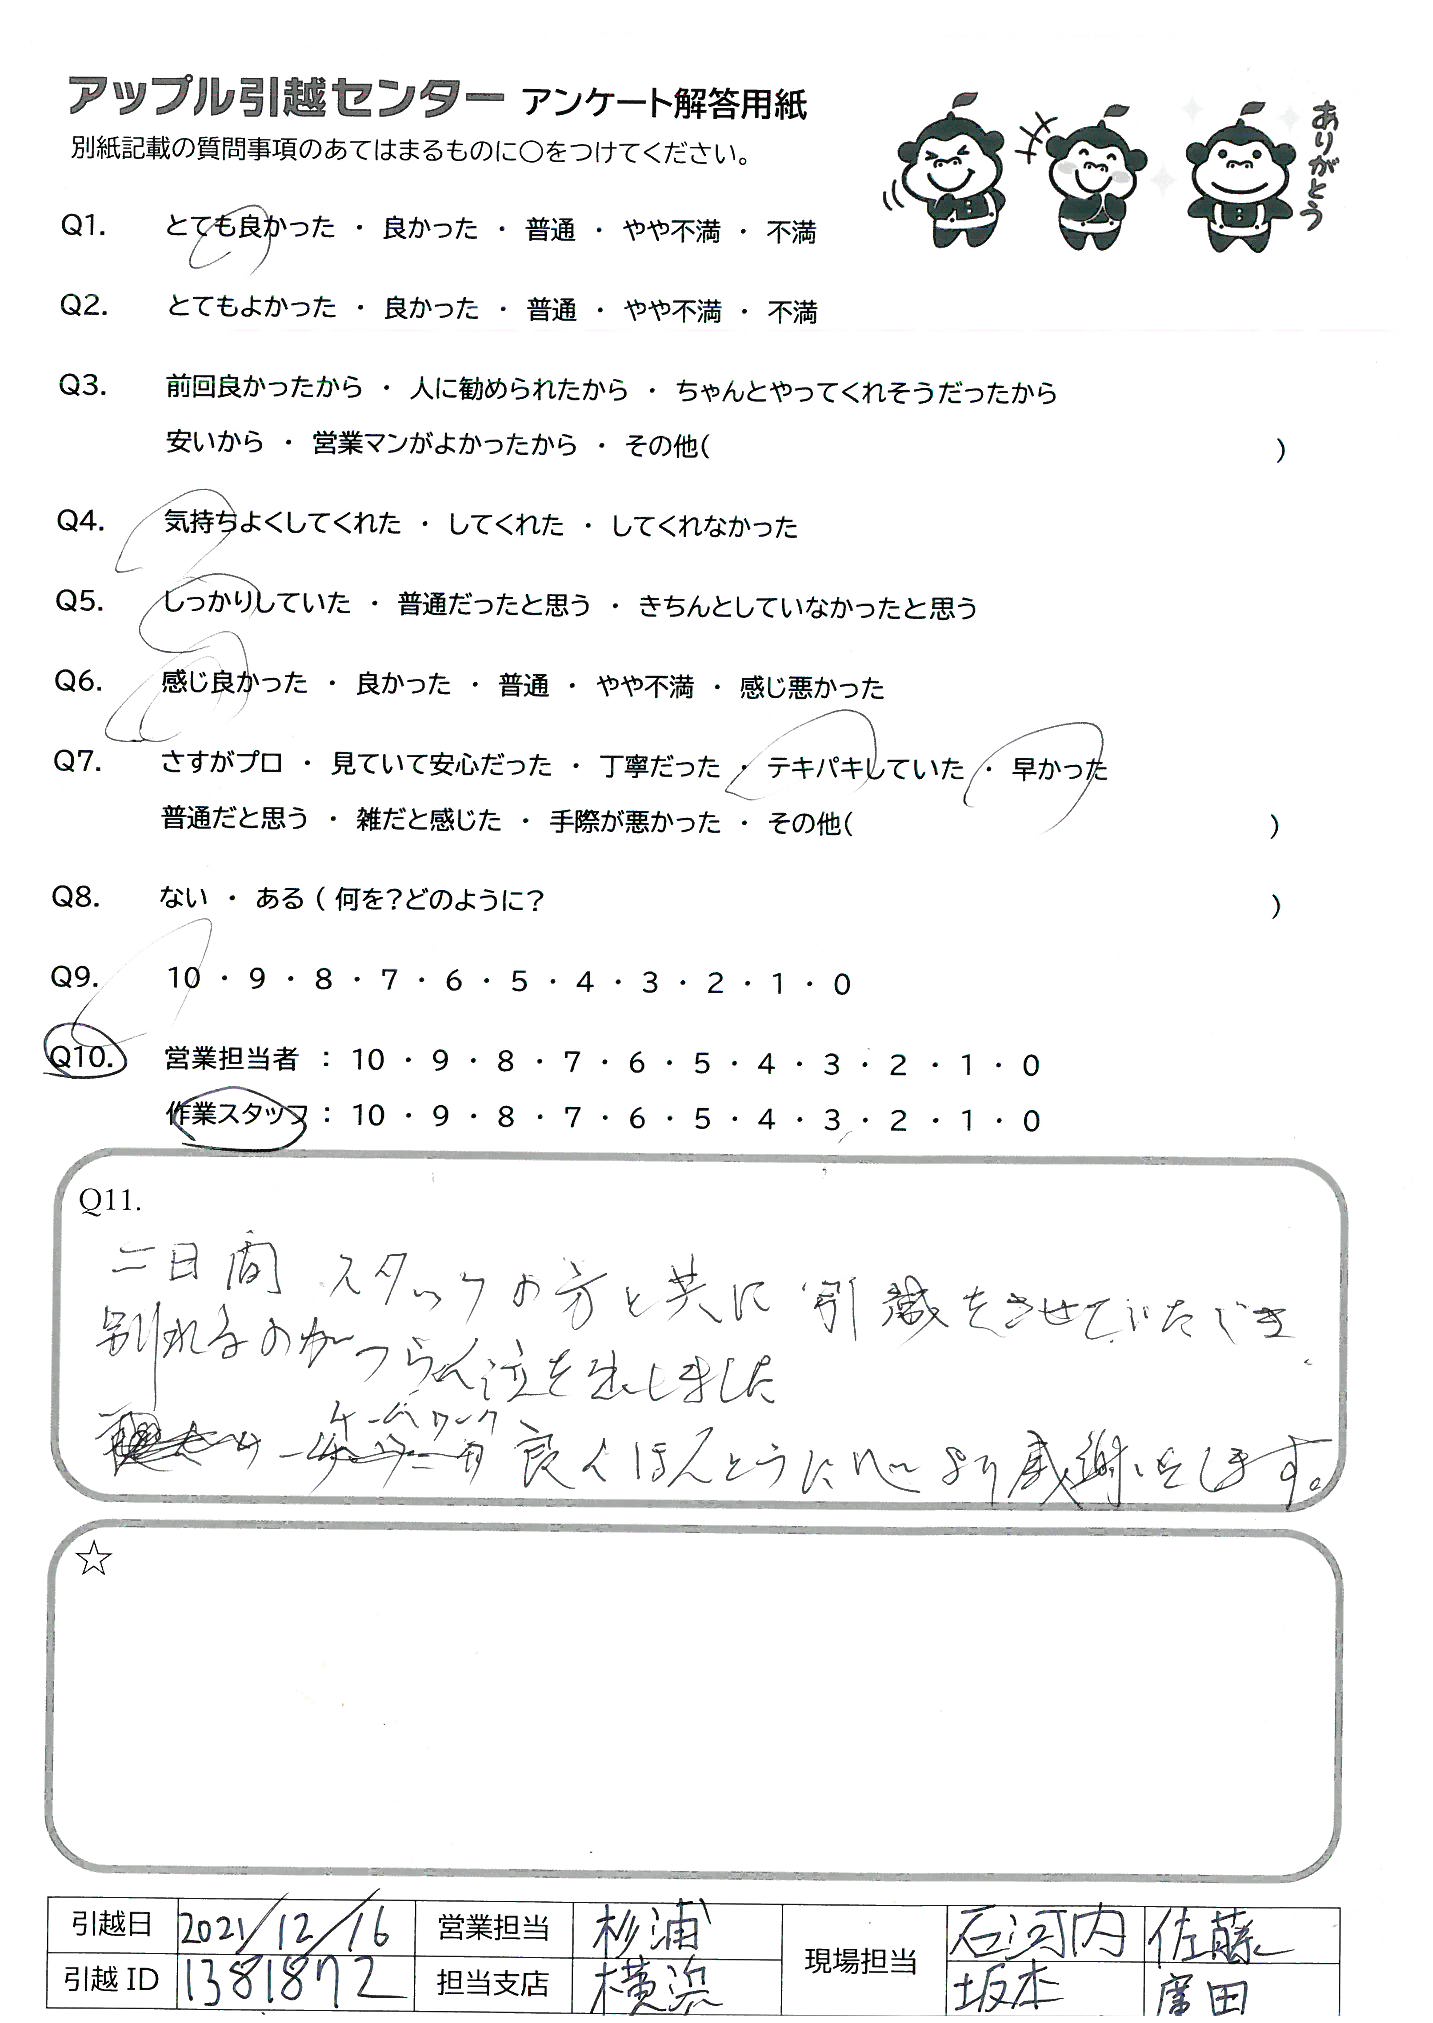 アップル引越センター アンケート解答用紙
別紙記載の質問事項のあてはまるものに○をつけてください。
ありがとう
Q1. とても良かった ・ 良かった ・ 普通 ・ やや不満 ・ 不満
Q2. とてもよかった ・ 良かった ・ 普通 ・ やや不満 ・ 不満
Q3. 前回良かったから ・ 人に勧められたから ・ ちゃんとやってくれそうだったから
安いから ・ 営業マンがよかったから ・ その他( )
Q4. 気持ちよくしてくれた ・ してくれた ・ してくれなかった
Q5. しっかりしていた ・ 普通だったと思う ・ きちんとしていなかったと思う
Q6. 感じ良かった ・ 良かった ・ 普通 ・ やや不満 ・ 感じ悪かった
Q7. さすがプロ ・ 見ていて安心だった ・ 丁寧だった ・ テキパキしていた ・ 早かった
普通だと思う ・ 雑だと感じた ・ 手際が悪かった ・ その他( )
Q8. ない ・ ある ( 何を?どのように? )
Q9. 10 ・ 9 ・ 8 ・ 7 ・ 6 ・ 5 ・ 4 ・ 3 ・ 2 ・ 1 ・ 0
Q10. 営業担当者 : 10 ・ 9 ・ 8 ・ 7 ・ 6 ・ 5 ・ 4 ・ 3 ・ 2 ・ 1 ・ 0
作業スタッフ : 10 ・ 9 ・ 8 ・ 7 ・ 6 ・ 5 ・ 4 ・ 3 ・ 2 ・ 1 ・ 0
Q11.
二日間 スタッフの方と共に 引越をさせていただき
別れるのがつらく泣き出しました
チームワーク
良くほんとうに心より感謝をします。
☆
引越日 2021/12/16 営業担当 杉浦 現場担当 石河内 佐藤
引越 ID 1381872 担当支店 横浜 坂本 廣田